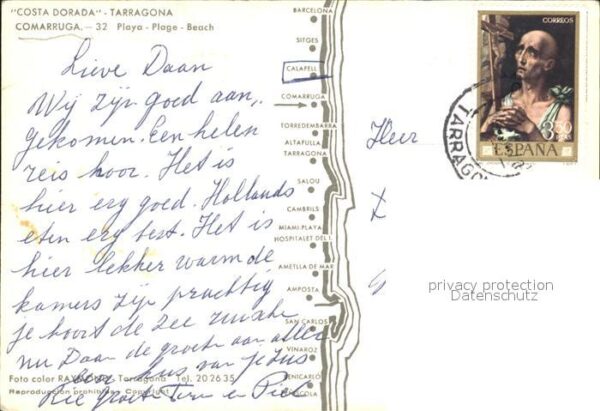 "COSTA DORADA" - TARRAGONA
COMARRUGA. — 32 Playa - Plage - Beach
Lieve Daan
Wij zijn goed aan„
gekomen. Een helen
reis hoor. Het is
hier erg goed. Hollands
eten erg best. Het is
hier lekker warm de
kamers zijn prachtig
je hoort de Zee
nu Daan de groeten aan allen
een kus van je Zus
Rie groet Ton en Piet
Foto color RAYMOND - Tarragona Tel. 20 26 35
Reproducción prohibida - Copyright
BARCELONA
SITGES
CALAFELL
COMARRUGA
TORREDEMBARRA
ALTAFULLA
TARRAGONA
SALOU
CAMBRILS
MIAMI-PLAYA
HOSPITALET DEL I.
AMETLLA DE MAR
AMPOSTA
SAN CARLOS
VINAROZ
BENICARLÓ
PEÑISCOLA
Heer
CORREOS
3,50
PTAS
ESPAÑA
TARRAGO
privacy protection
Datenschutz